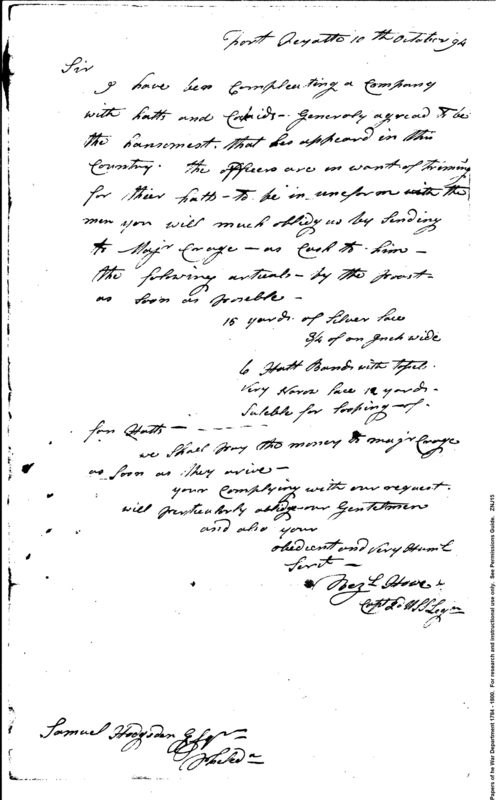 Fort Feyatte 10th October 94
Sir
I have ben Compleating a Company
with hatts and Generaly agread to be
the hansomest. that has appeard in this
Country. the officers are in want of triming
for thier hatts - to be in uneform with the
men you will much oblidg us by sending
to Majr Crage - as Cash to him -
the folowing articals - by the poast -
as soon as poseble -
15 yards. of Silver lace
3/4 of an Inch wide
6 Hatt Bands with
Very Narow lace 12 yards -
Suteble for looping of.
for Hatts -
we shall pay the money to majr Crage
as soon as they arive -
your Complying with our request.
will perticularly oblidge our Gentelmen
and also your
obedient and Very Huml
Servt -
Bezl Howe
Capt 2d USSLegn
Samuel Hodgsdon Esqr
Pheleda
Papers of he War Department 1784 - 1800. For research and instructional use only. See Permissions Guide. ZNJ15